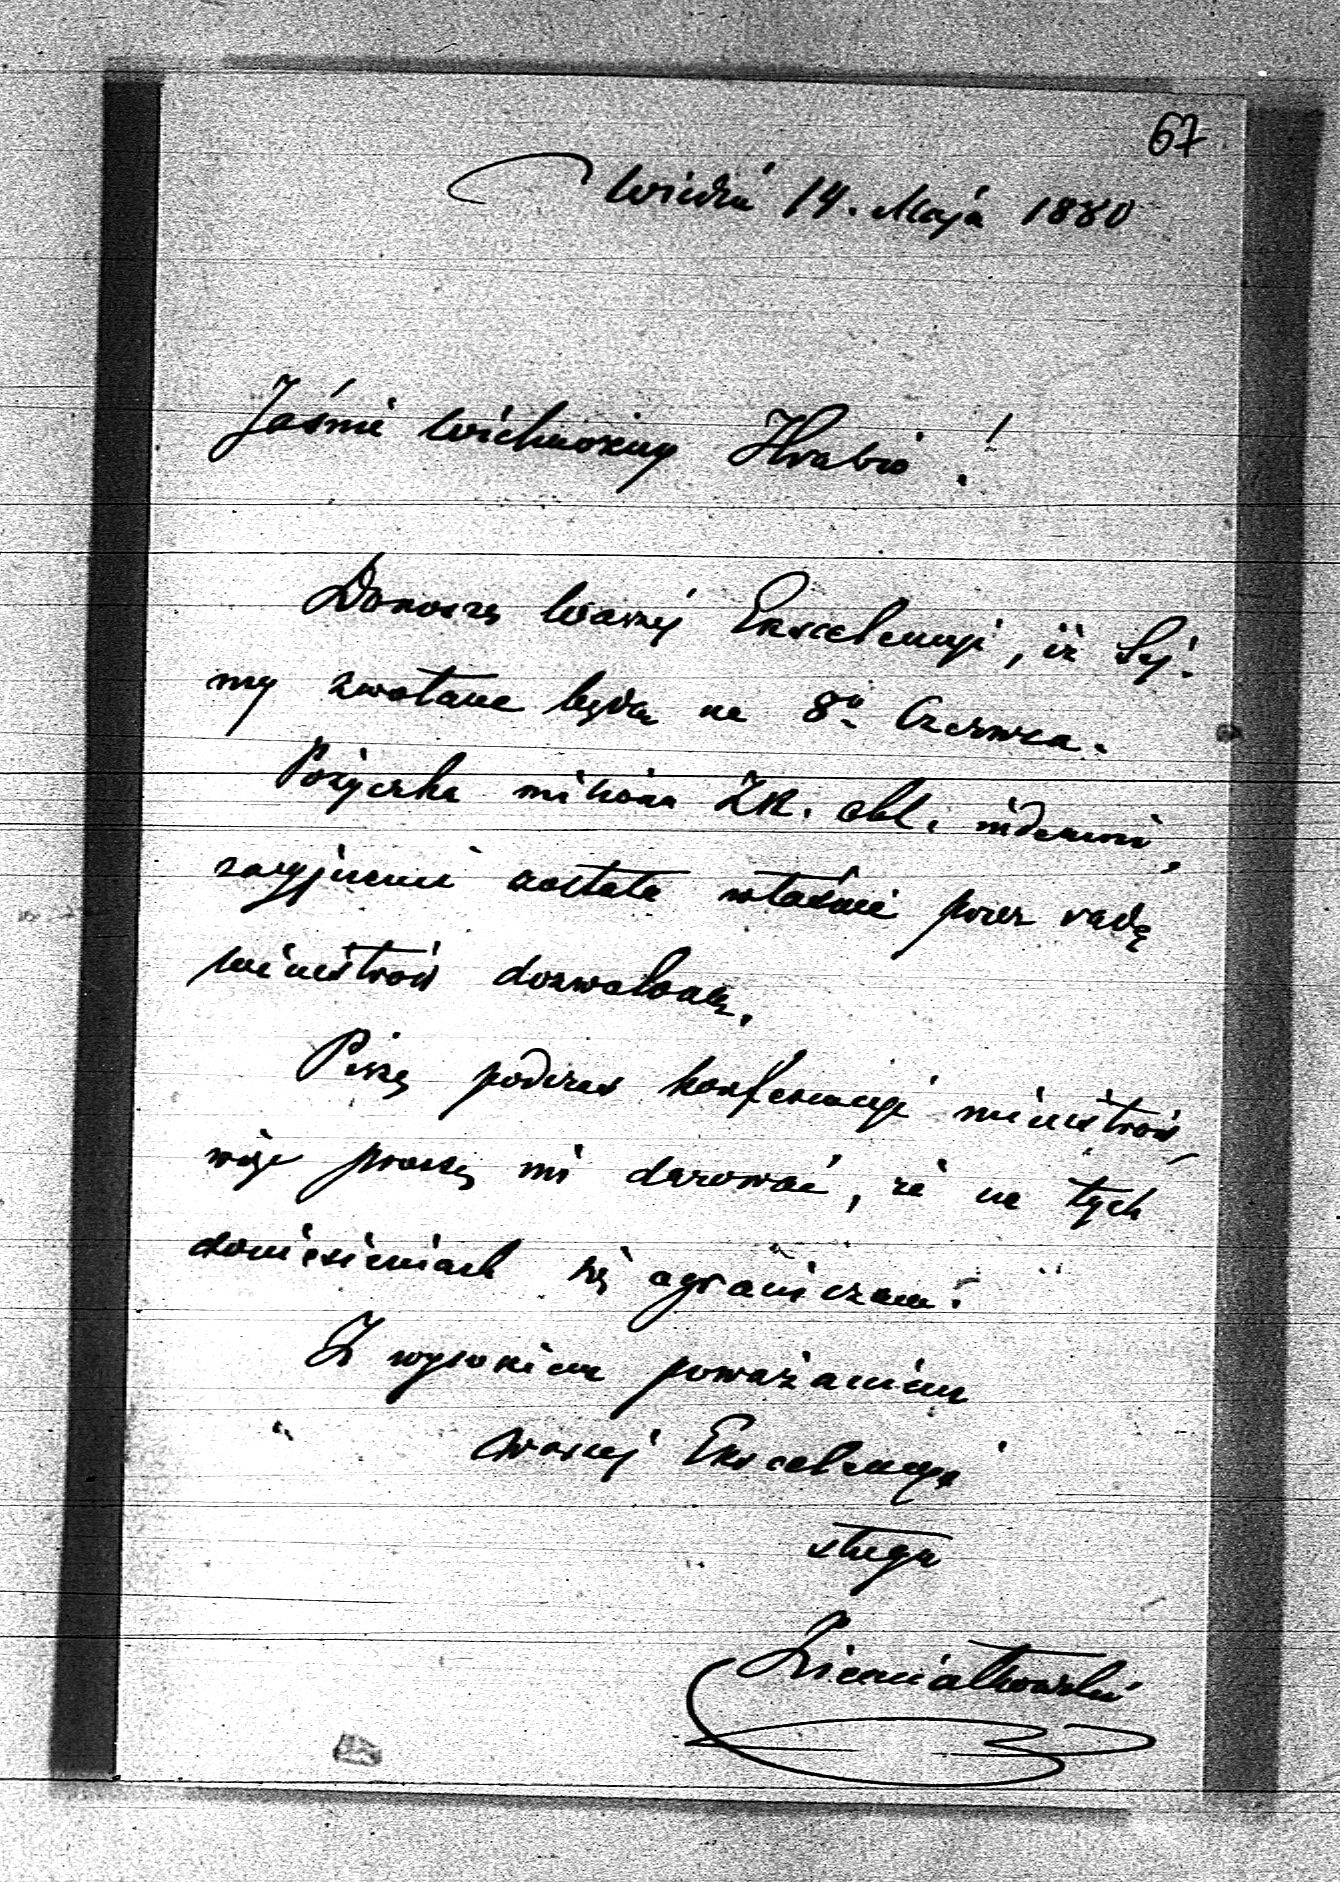 67
Wiedeń 14. Maja 1880
Jaśnie Wielmożny Hrabio!
Donoszę Waszej Excelencyi, iż Sej-
my zwołane będą na 8º Czerwca.
Pożyczka miliona ZR. obl. indemni
zacyjnemi została właśnie przez radę
ministrów dozwoloną.
Piszę podczas konferencyi ministrów,
więc proszę mi darować, że na tych
doniesieniach się ograniczam.
Z wysokiem poważaniem
Waszej Excelencyi
sługa
Ziemiałkowski